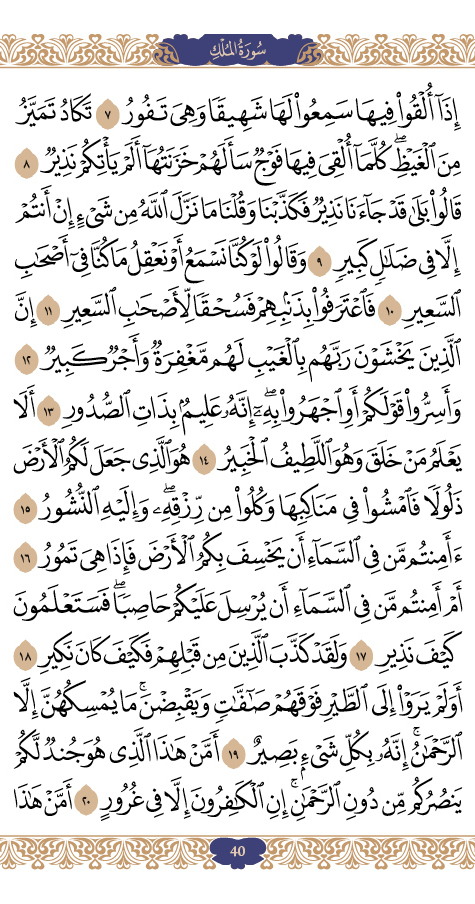 سُورَةُ المُلْكِ
إِذَآ أُلْقُوا۟ فِيهَا سَمِعُوا۟ لَهَا شَهِيقًا وَهِىَ تَفُورُ ٧ تَكَادُ تَمَيَّزُ
مِنَ ٱلْغَيْظِ ۖ كُلَّمَآ أُلْقِىَ فِيهَا فَوْجٌ سَأَلَهُمْ خَزَنَتُهَآ أَلَمْ يَأْتِكُمْ نَذِيرٌ ٨
قَالُوا۟ بَلَىٰ قَدْ جَآءَنَا نَذِيرٌ فَكَذَّبْنَا وَقُلْنَا مَا نَزَّلَ ٱللَّهُ مِن شَىْءٍ إِنْ أَنتُمْ
إِلَّا فِى ضَلَٰلٍ كَبِيرٍ ٩ وَقَالُوا۟ لَوْ كُنَّا نَسْمَعُ أَوْ نَعْقِلُ مَا كُنَّا فِىٓ أَصْحَٰبِ
ٱلسَّعِيرِ ١٠ فَٱعْتَرَفُوا۟ بِذَنۢبِهِمْ فَسُحْقًا لِّأَصْحَٰبِ ٱلسَّعِيرِ ١١ إِنَّ
ٱلَّذِينَ يَخْشَوْنَ رَبَّهُم بِٱلْغَيْبِ لَهُم مَّغْفِرَةٌ وَأَجْرٌ كَبِيرٌ ١٢
وَأَسِرُّوا۟ قَوْلَكُمْ أَوِ ٱجْهَرُوا۟ بِهِۦٓ ۖ إِنَّهُۥ عَلِيمٌۢ بِذَاتِ ٱلصُّدُورِ ١٣ أَلَا
يَعْلَمُ مَنْ خَلَقَ وَهُوَ ٱللَّطِيفُ ٱلْخَبِيرُ ١٤ هُوَ ٱلَّذِى جَعَلَ لَكُمُ ٱلْأَرْضَ
ذَلُولًا فَٱمْشُوا۟ فِى مَنَاكِبِهَا وَكُلُوا۟ مِن رِّزْقِهِۦ ۖ وَإِلَيْهِ ٱلنُّشُورُ ١٥
ءَأَمِنتُم مَّن فِى ٱلسَّمَآءِ أَن يَخْسِفَ بِكُمُ ٱلْأَرْضَ فَإِذَا هِىَ تَمُورُ ١٦
أَمْ أَمِنتُم مَّن فِى ٱلسَّمَآءِ أَن يُرْسِلَ عَلَيْكُمْ حَاصِبًا ۖ فَسَتَعْلَمُونَ
كَيْفَ نَذِيرِ ١٧ وَلَقَدْ كَذَّبَ ٱلَّذِينَ مِن قَبْلِهِمْ فَكَيْفَ كَانَ نَكِيرِ ١٨
أَوَلَمْ يَرَوْا۟ إِلَى ٱلطَّيْرِ فَوْقَهُمْ صَٰٓفَّٰتٍ وَيَقْبِضْنَ ۚ مَا يُمْسِكُهُنَّ إِلَّا
ٱلرَّحْمَٰنُ ۚ إِنَّهُۥ بِكُلِّ شَىْءٍۭ بَصِيرٌ ١٩ أَمَّنْ هَٰذَا ٱلَّذِى هُوَ جُندٌ لَّكُمْ
يَنصُرُكُم مِّن دُونِ ٱلرَّحْمَٰنِ ۚ إِنِ ٱلْكَٰفِرُونَ إِلَّا فِى غُرُورٍ ٢٠ أَمَّنْ هَٰذَا
40